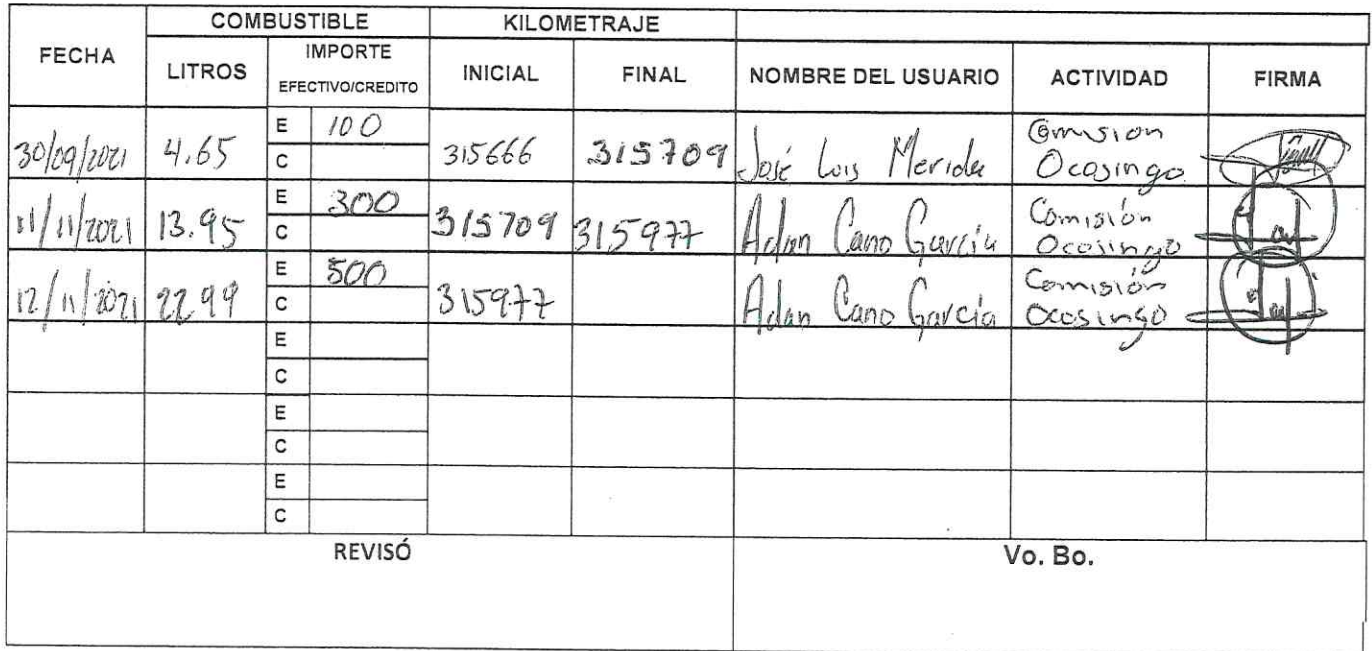 COMBUSTIBLE KILOMETRAJE
FECHA LITROS IMPORTE EFECTIVO/CREDITO INICIAL FINAL NOMBRE DEL USUARIO ACTIVIDAD FIRMA
30/09/2021 4.65 E 100 315666 315709 José Luis Merida Comision
C Ocosingo
11/11/2021 13.95 E 300 315709 315977 Adan Cano García Comisión
C Ocosingo
12/11/2021 22.99 E 500 315977 Adan Cano García Comisión
C Ocosingo
E
C
E
C
E
C
REVISÓ Vo. Bo.